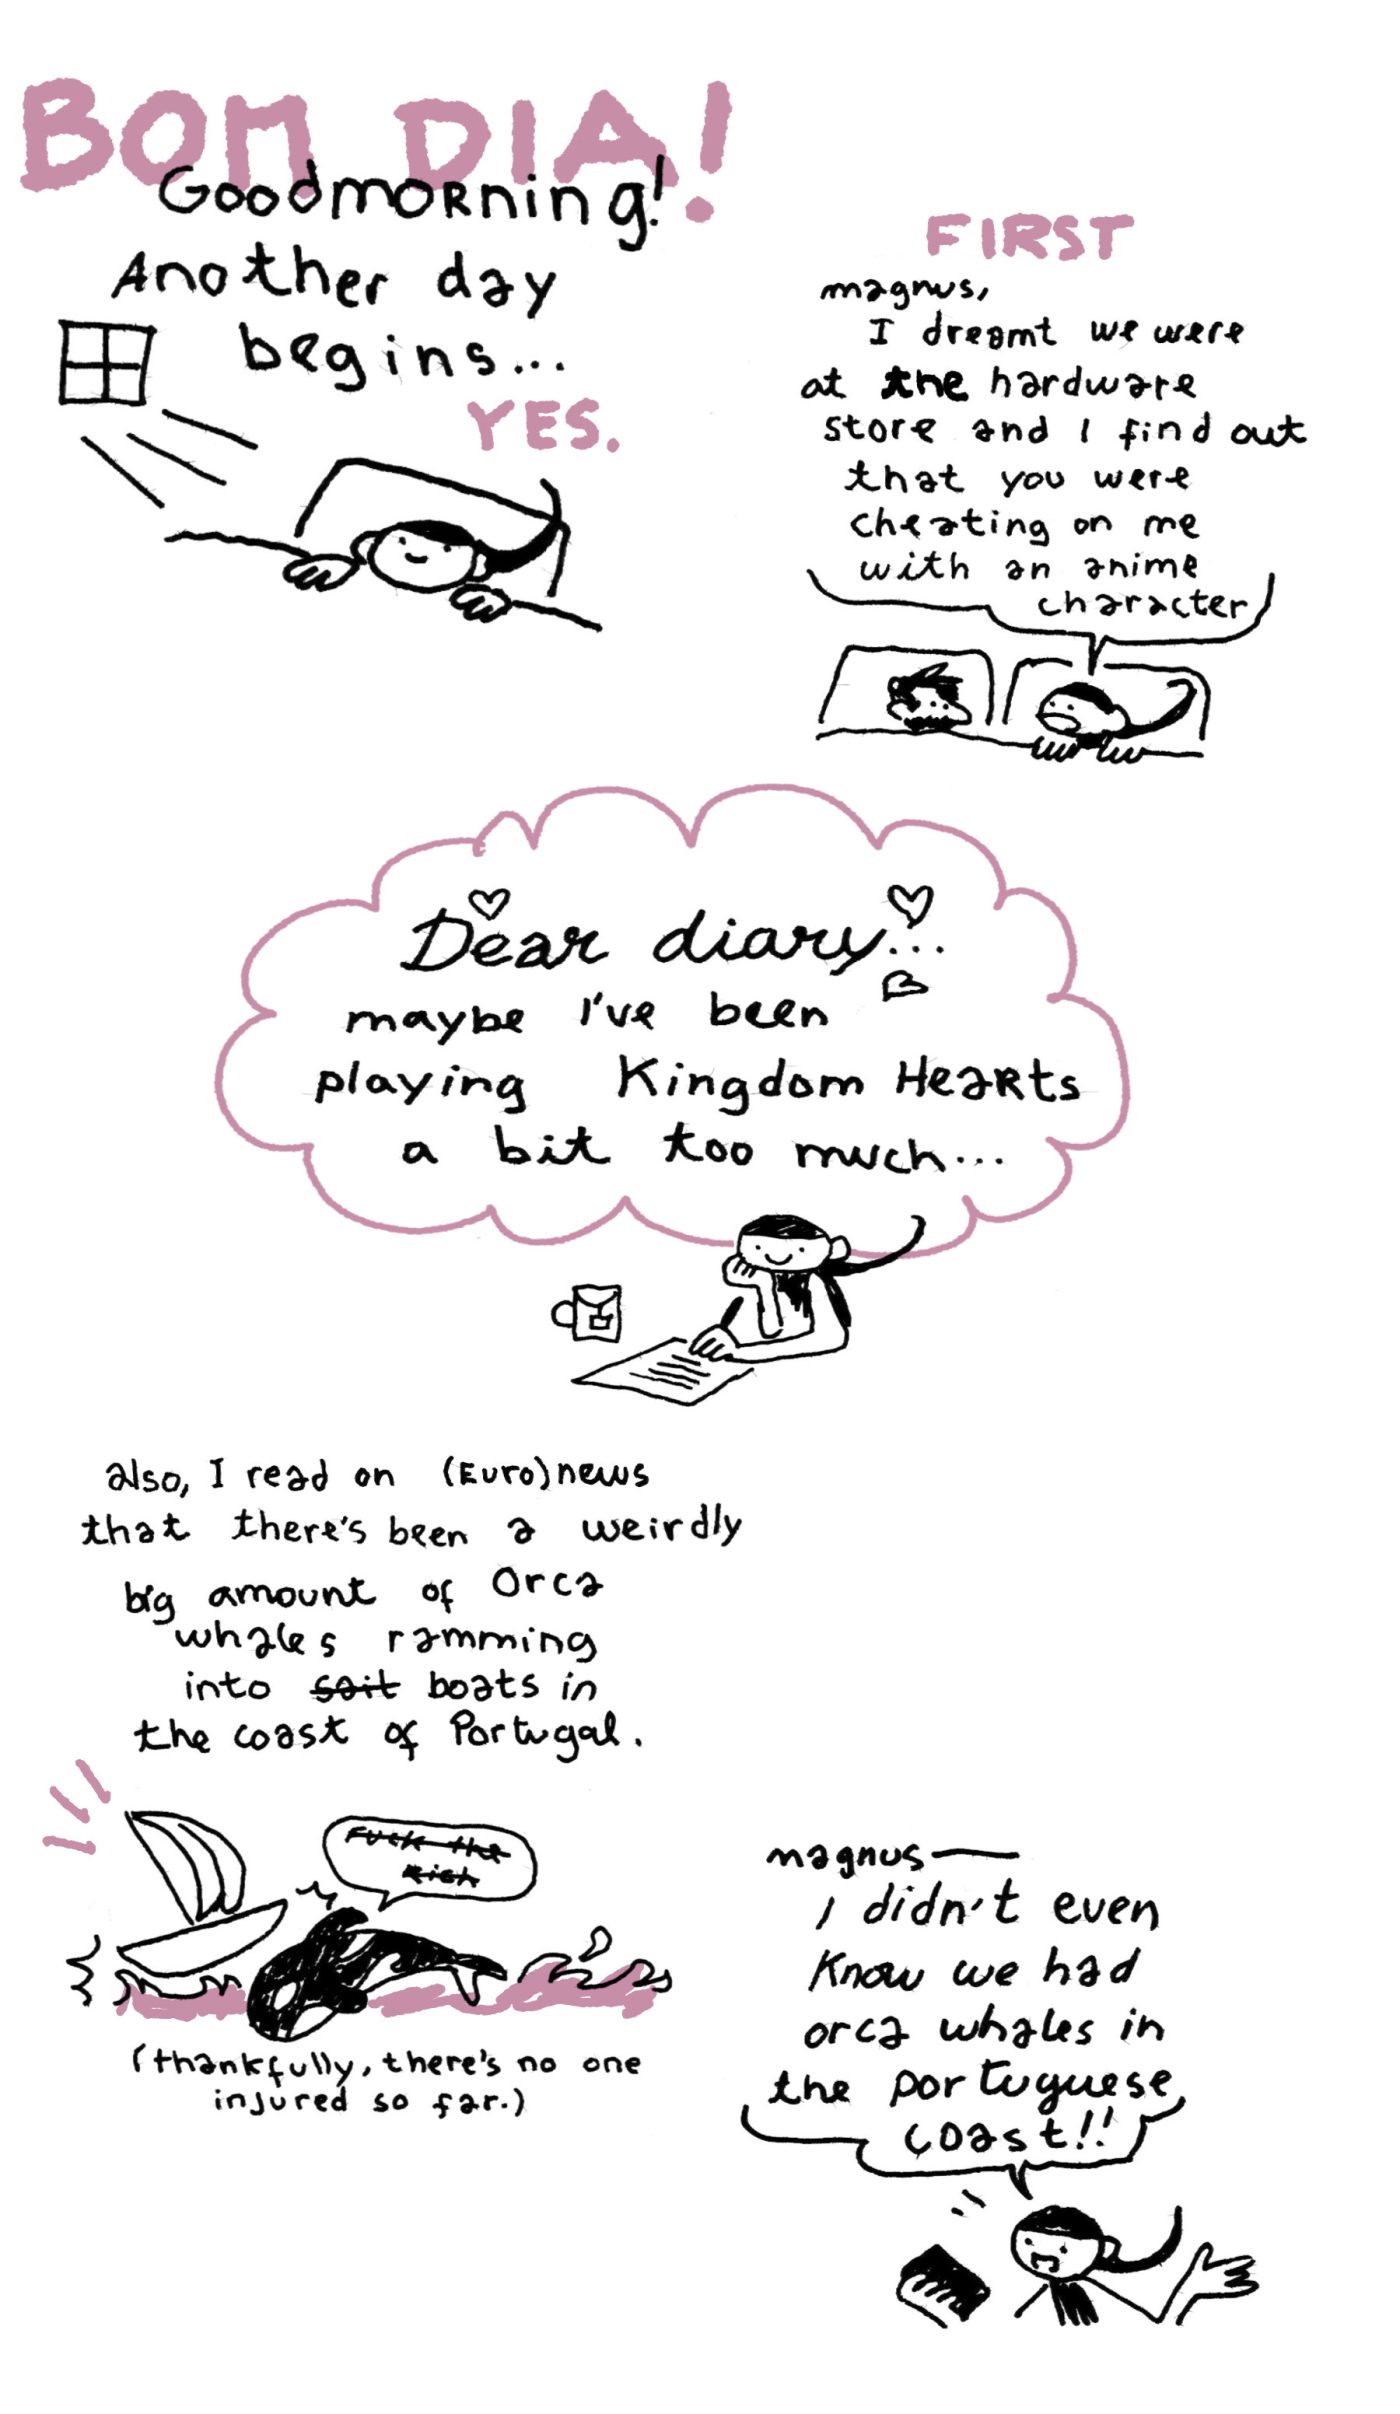 BOM DIA!
Goodmorning!
Another day
begins...
YES.
FIRST
magnus,
I dreamt we were
at the hardware
store and I find out
that you were
cheating on me
with an anime
character
Dear diary...
maybe I've been
playing Kingdom Hearts
a bit too much...
also, I read on (Euro)news
that there's been a weirdly
big amount of Orca
whales ramming
into sail boats in
the coast of Portugal.
Fuck the
Rich
(thankfully, there's no one
injured so far.)
magnus—
I didn't even
know we had
orca whales in
the portuguese
coast!!